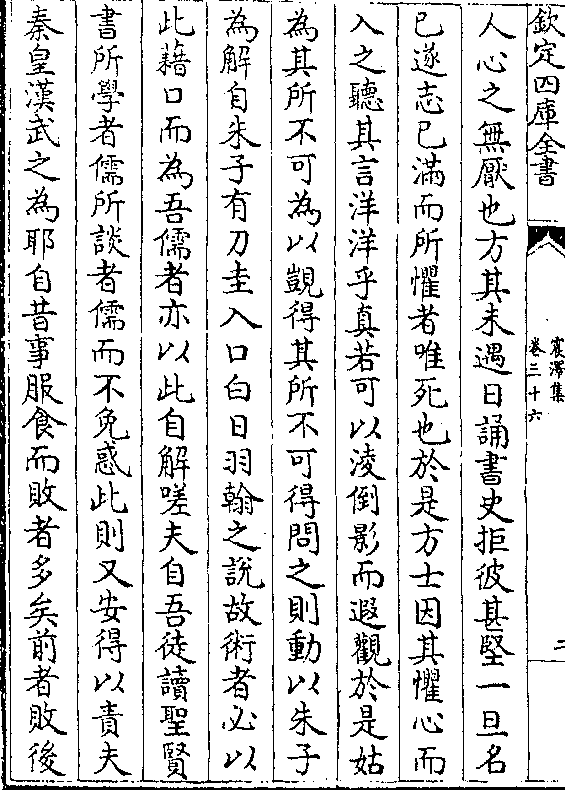 欽定四庫全書
震澤集
卷三十六
二
人心之無厭也方其未遇日誦書史拒彼甚堅一旦名
已遂志已滿而所懼者唯死也於是方士因其懼心而
入之聽其言洋洋乎真若可以淩倒影而遐觀於是姑
為其所不可為以覬得其所不可得問之則動以朱子
為解自朱子有刀圭入口白日羽翰之說故術者必以
此藉口而為吾儒者亦以此自解嗟夫自吾徒讀聖賢
書所學者儒所談者儒而不免惑此則又安得以責夫
秦皇漢武之為耶自昔事服食而敗者多矣前者敗後